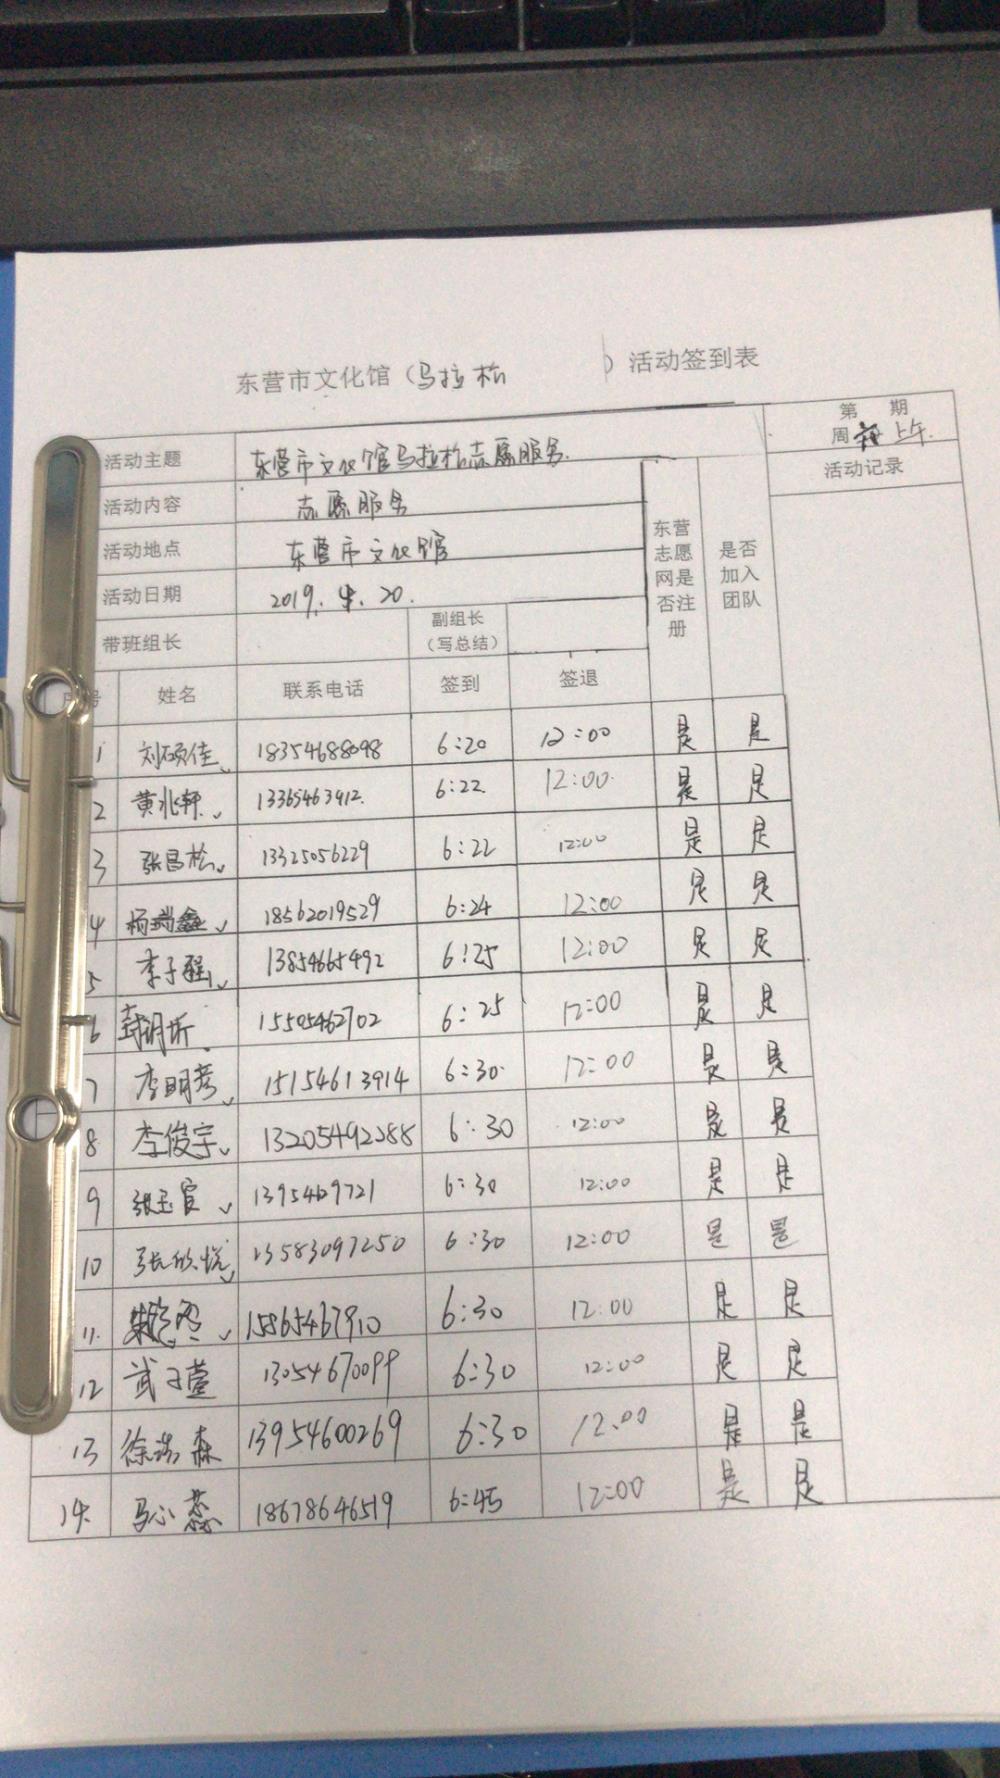 东营市文化馆(马拉松 )活动签到表
第 期
周 上午.
活动主题 东营市文化馆马拉松志愿服务.
活动内容 志愿服务
活动地点 东营市文化馆
活动日期 2019.4.20.
东营志愿网是否注册
是否加入团队
活动记录
带班组长 副组长(写总结)
号 姓名 联系电话 签到 签退
1 刘硕佳 18354688098 6:20 12:00 是 是
2 黄兆轩 13365463912. 6:22 12:00 是 是
3 张昌松 13325056229 6:22 12:00 是 是
4 杨瑞鑫 18562019529 6:24 12:00 是 是
5 李子 13854665492 6:25 12:00 是 是
6 15505462702 6:25 12:00 是 是
7 李明彦 15154613914 6:30 12:00 是 是
8 李俊宇 13205492288 6:30 12:00 是 是
9 张玉宦 1395469721 6:30 12:00 是 是
10 张欣悦 13583097250 6:30 12:00 是 是
11. 15865467910 6:30 12:00 是 是
12 武子萱 13054670099 6:30 12:00 是 是
13 徐浩森 13954600269 6:30 12:00 是 是
14. 马心蕊 18678646519 6:45 12:00 是 是